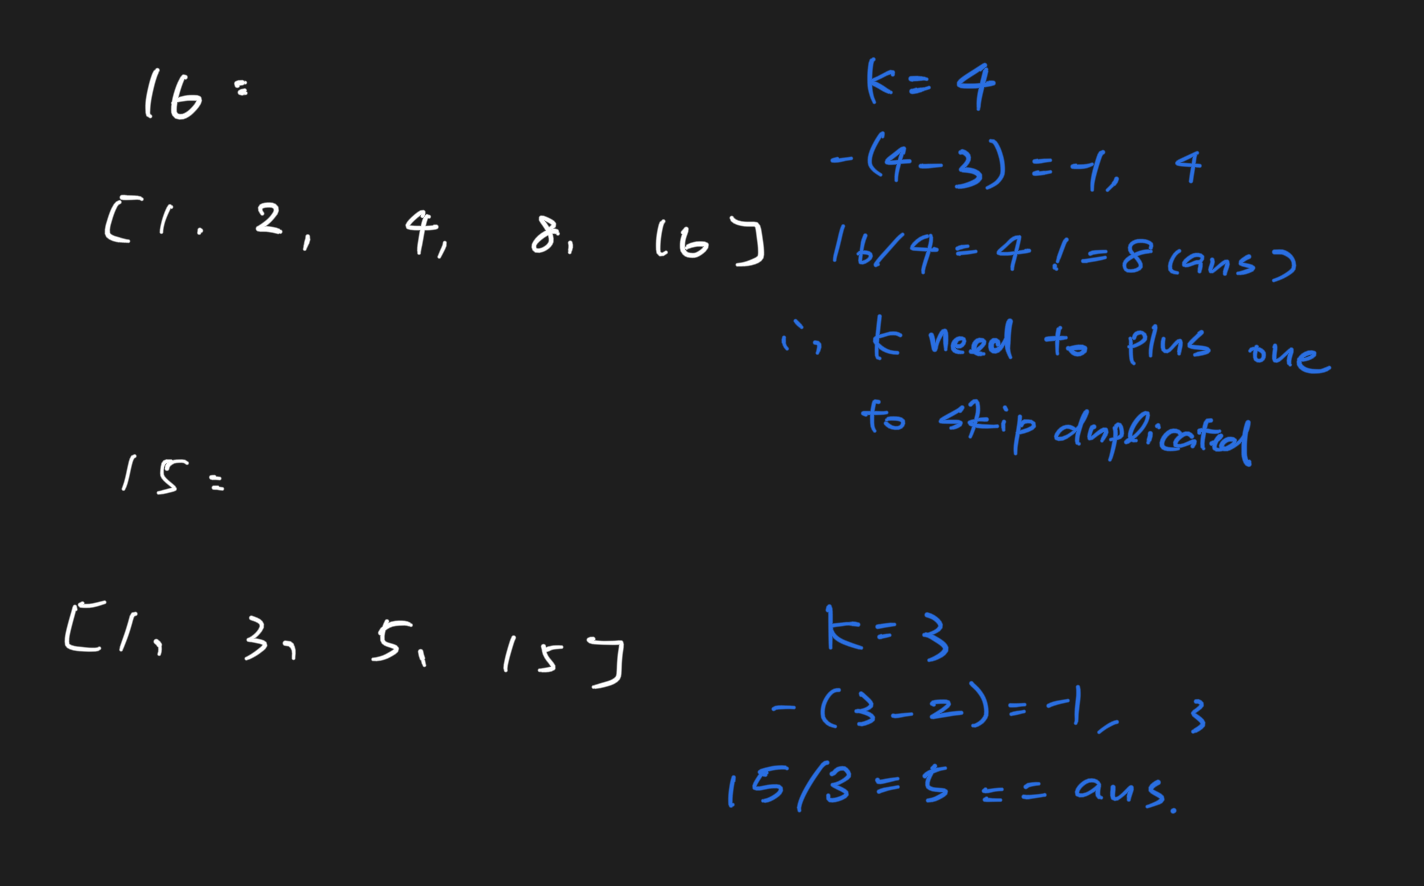 16 =
[1. 2, 4, 8, 16]
k = 4
-(4-3) = -1, 4
16/4 = 4 != 8 (ans)
∴ k need to plus one
to skip duplicated
15 =
[1, 3, 5, 15]
k = 3
-(3-2) = -1, 3
15/3 = 5 == ans.